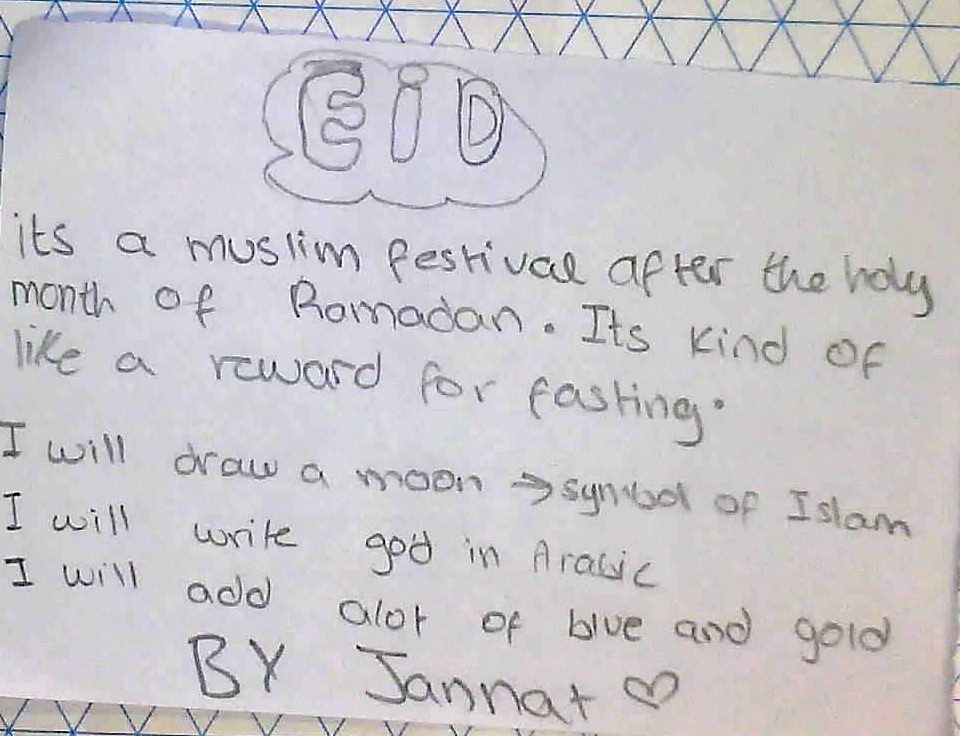 EiD
its a muslim festival after the holy
month of Ramadan. Its kind of
like a reward for fasting.
I will draw a moon → symbol of Islam
I will write god in Arabic
I will add alot of blue and gold
BY Jannat ♡